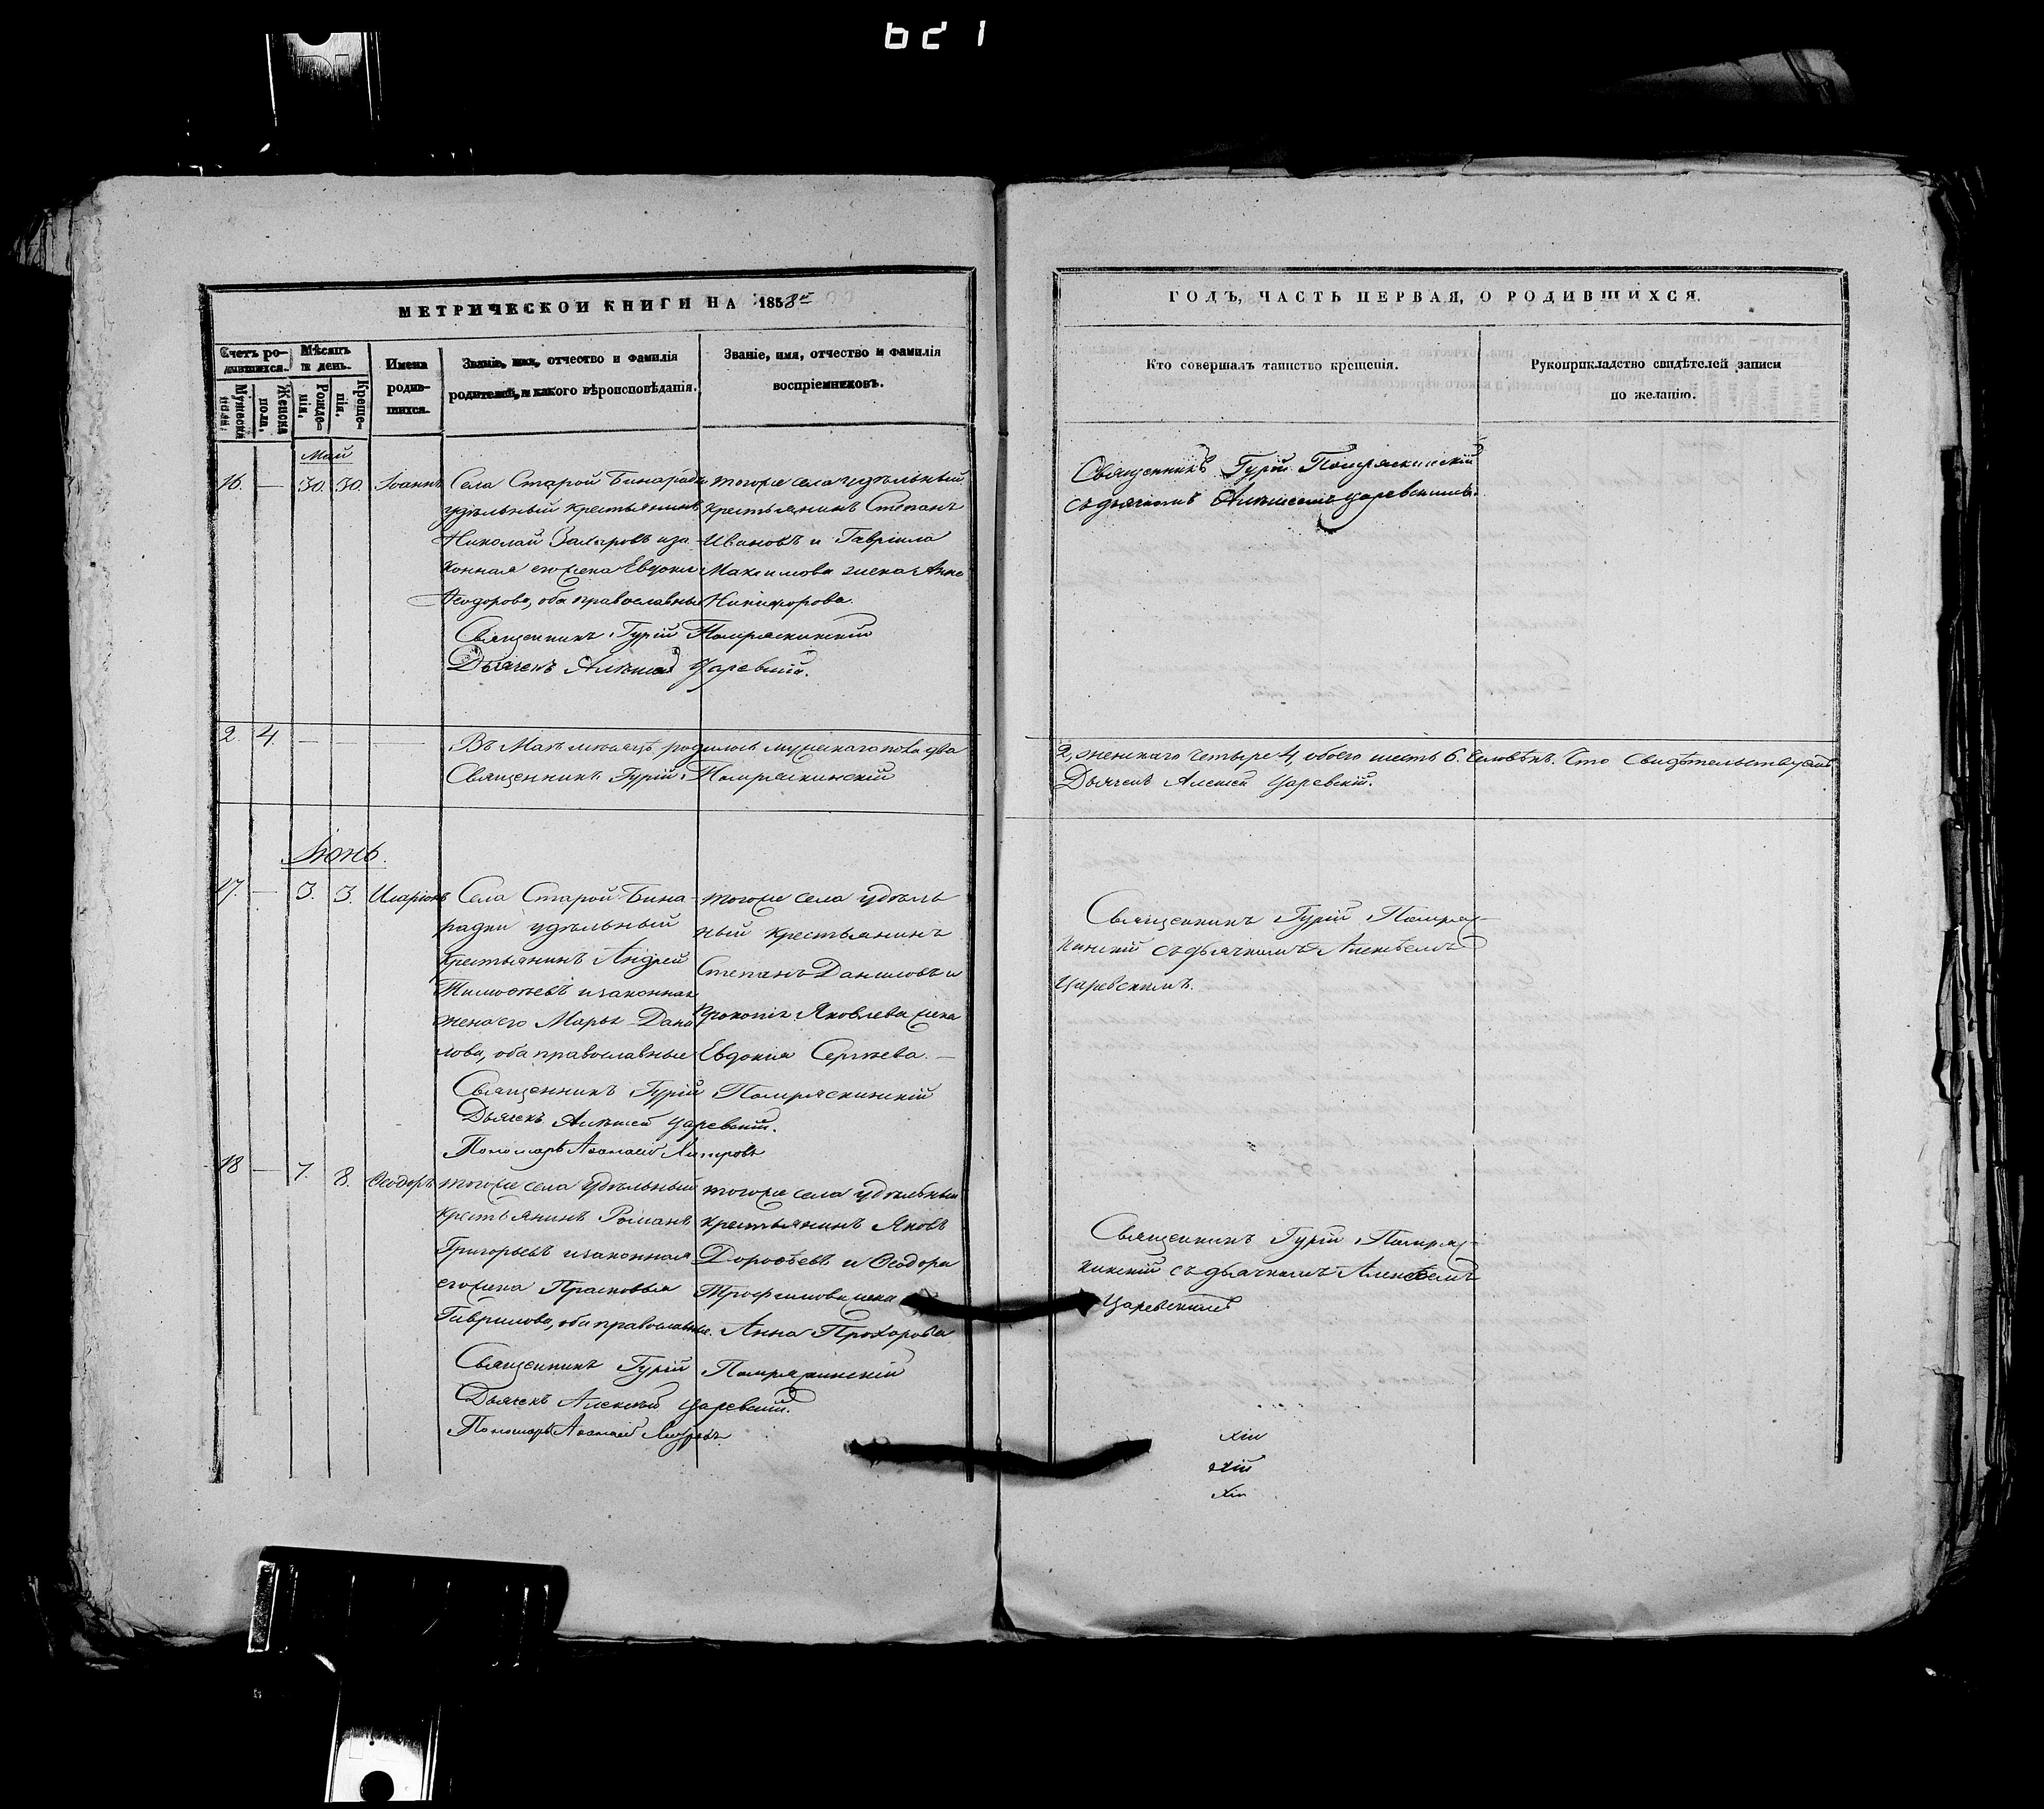 621
МЕТРИЧЕСКОЙ КНИГИ НА 1858й
Счетъ родившихся.
Мѣсяцъ и день.
Имена родившихся.
Званіе, имя, отчество и фамилія родителей, и какого вѣроисповѣданія.
Званіе, имя, отчество и фамилія воспріемниковъ.
Мужеска пола.
Женска пола.
Рожденія.
Крещенія.
Май
16. — 30. 30. Іоаннъ
Села Старой Бинарадки
удѣльный крестьянинъ
Николай Захаровъ и за
конная его жена Евдокія
Ѳеодорова, оба православные
тогоже села удѣльный
крестьянинъ Степанъ
Ивановъ и Гавріила
Максимова жена Анна
Никифорова.
Священникъ Гурій Помряскинскій
Дьячекъ Алексѣй Царевскій.
2. 4. — — —
Въ Маѣ мѣсяцѣ родилось мужескаго пола два
Священникъ Гурій Помряскинскій
Іюнь.
17. — 3. 3. Иларіонъ
Села Старой Бина-
радки удѣльный
крестьянинъ Андрей
Тимоѳеевъ и законная
жена его Марья Дани
лова, оба православные
тогоже села удѣль
ный крестьянинъ
Степанъ Даниловъ и
Прокопія Яковлева жена
Евдокия Сергѣева. —
Священникъ Гурій Помряскинскій
Дьячекъ Алексѣй Царевскій.
Пономарь
18 — 7. 8. Ѳеодоръ
тогоже села удѣльный
крестьянинъ Романъ
Григорьевъ и законная
его жена Прасковья
Гаврилова, оба православные.
тогоже села удѣльный
крестьянинъ Яковъ
Дороѳеевъ и Ѳеодора
Трофимова жена
Анна Прохорова
Священникъ Гурій Помряскинскій
Дьячекъ Алексѣй Царевскій.
Пономарь
ГОДЪ, ЧАСТЬ ПЕРВАЯ, О РОДИВШИХСЯ.
Кто совершалъ таинство крещенія.
Рукоприкладство свидѣтелей записи
по желанію.
Священникъ Гурій Помряскинскій
съ дьячкомъ Алексѣемъ Царевскимъ.
2, женскаго четыре 4, обоего шесть 6. человѣкъ. Что свидѣтельствуемъ
Дьячекъ Алексѣй Царевскій.
Священникъ Гурій Помряс-
кинскій съ дьячкомъ Алексѣемъ
Царевскимъ.
Священникъ Гурій Помряс-
кинскій съ дьячкомъ Алексѣемъ
Царевскимъ